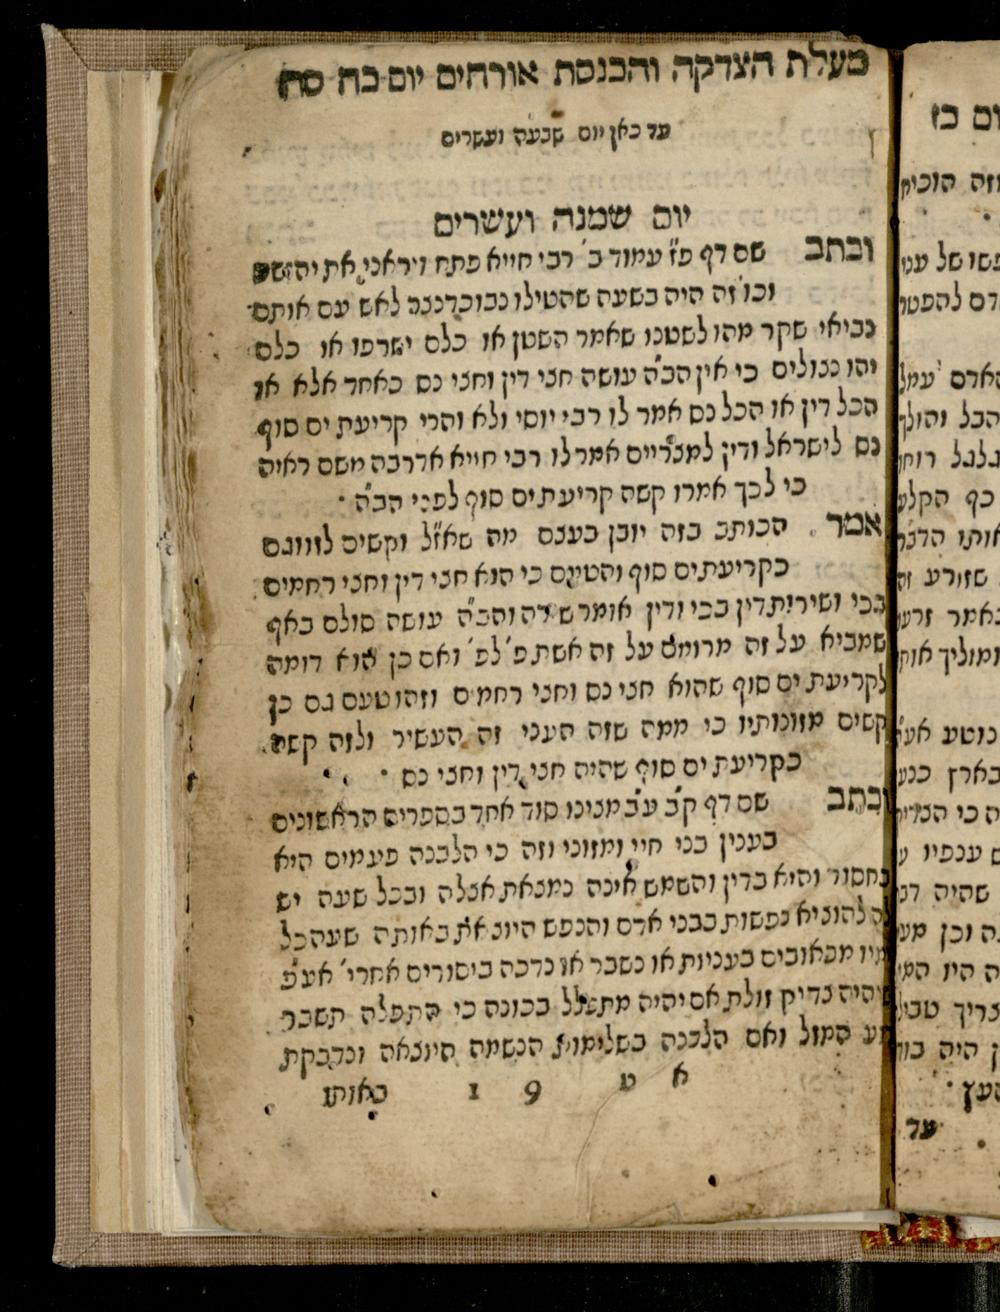 מעלת הצדקה והכנסת אורחים יום כח סח
עד כאן יום שבעה ועשרים
יום שמנה ועשרים
וכתב שם דף פ״ז עמוד ב׳ רבי חייא פתח ויראני את יהושע
וכו׳ זה היה בשעה שהטילו נבוכדנצר לאש עם אותם
נביאי שקר מהו לשטנו שאמר השטן או כלם ישרפו או כלם
יהו נצולים כי אין הב״ה עושה חצי דין וחצי נס כאחד אלא או
הכל דין או הכל נס אמר לו רבי יוסי ולא והרי קריעת ים סוף
נס לישראל ודין למצריים אמר לו רבי חייא אדרבה משם ראיה
כי לכך אמרו קשה קריעת ים סוף לפני הב״ה
אמר הכותב בזה יובן בעצם מה שאז״ל וקשים לזווגם
כקריעת ים סוף והטעם כי הוא חצי דין וחצי רחמים
בכי ושירות דין בכי ודין אומר שירה והב״ה עושה סולם באף
שמביא על זה מרומם על זה אשת פ׳ לפ׳ ואם כן הוא דומה
לקריעת ים סוף שהוא חצי נס וחצי רחמים וזהו טעם גם כן
קשים מזונותיו כי ממה שזה העני זה העשיר ולזה קשה
כקריעת ים סוף שהיה חצי דין וחצי נס
וכתב שם דף ק״ב ע״ב מצינו סוד אחד בספרים הראשונים
בענין בני חיי ומזוני וזה כי הלבנה פעמים היא
בחסור והיא בדין והשמש אינה נמצאת אצלה ובכל שעה יש
לה להוציא נפשות בבני אדם והנפש היוצאת באותה שעה כל
מיו מכאובים בעניות או נשבר או נדכה ביסורים אחרי׳ אע״פ
שיהיה צדיק זולת אם יהיה מתפלל בכונה כי התפלה תשבר
רע המזל ואם הלבנה בשלימות הנשמה היוצאה ונדבקת
א ט 9 1 באותו
ום כז
וזה הוכיח
פשו של עני
דם להפטר
הארם עמל
הבל והולך
גלגל רוחו
כף הקלע
אותו הדבר
שזורע זה
נאמר זרעו
ומוליך אות
נוטע
בארץ כנע
ה כי הצדיק
ם ענפיו ע
שהיה
ה וכן מע
ה היו המי
צריך טביל
ן היה בור
העץ
עד